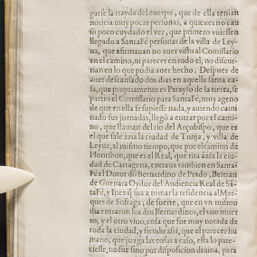 garse la trayda del cuerpo, que de ella tenian
noticia muy pocas personas, a quienes no cau
sò poco cuydado el ver, que primero viniessen
llegado a Santa Fè personas de la villa de Ley-
ua, que afirmauan no auer visto al Comissario
en el camino, ni parecer en todo el, no discur-
rian en lo que podia auer hecho. Despues de
auer descansado dos dias en aquella santa ca-
sa, que propriamente es Parayso de la tierra, se
partio el Comissario para Santa Fè, muy ageno
de que en ella se supiesse nada, y auiendo cami
nado sus jornadas, llegò a entrar por el cami-
no, que llaman del rio del Arçobispo, que es
el que sale a la ciudad de Tunja, y villa de
Leyua, al mismo tiempo, que por el camino de
Hontibon, que es el Real, que tira àzia la ciu-
dad de Cartagena, entraua tambien en Santa-
Fè el Dotor don Bernardino de Prado, Beltran
de Gueuara Oydor del Audiencia Real de Sã-
ta Fè, y Iuez que iua a tomar la residencia al Mar-
ques de Sofraga; de suerte, que en vn mismo
dia entraron los dos Bernardinos, el vno muer
to, y el otro viuo, cosa que fue muy notada de
toda la ciudad, y siendo assi, que al parecer hu
mano, que juzga las cosas a caso, esta lo pare-
ciesse, no fue sino por disposicion diuina, para